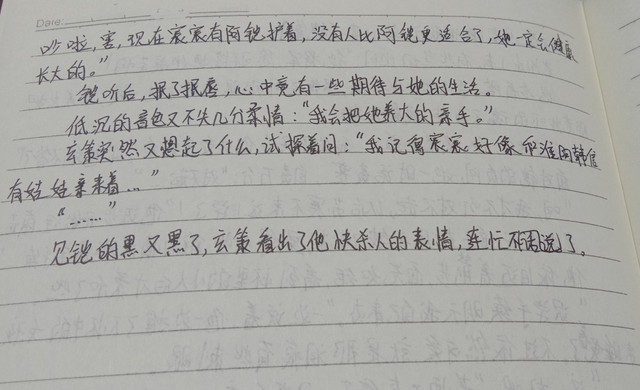 Date.
吵啦,害,现在裒裒有阿铠护着,没有人比阿铠更适合了,她一定会健康
长大的。”
铠听后,抿了抿唇,心中竟有一些期待与她的生活。
低沉的音色又不失几分柔情:“我会把她养大的亲手。”
玄策突然又想起了什么,试探着问:“我记得裒裒好像和淮阴韩信
有娃娃亲来着…”
“……”
见铠的黑又黑了,玄策看出了他快杀人的表情,连忙不说了。